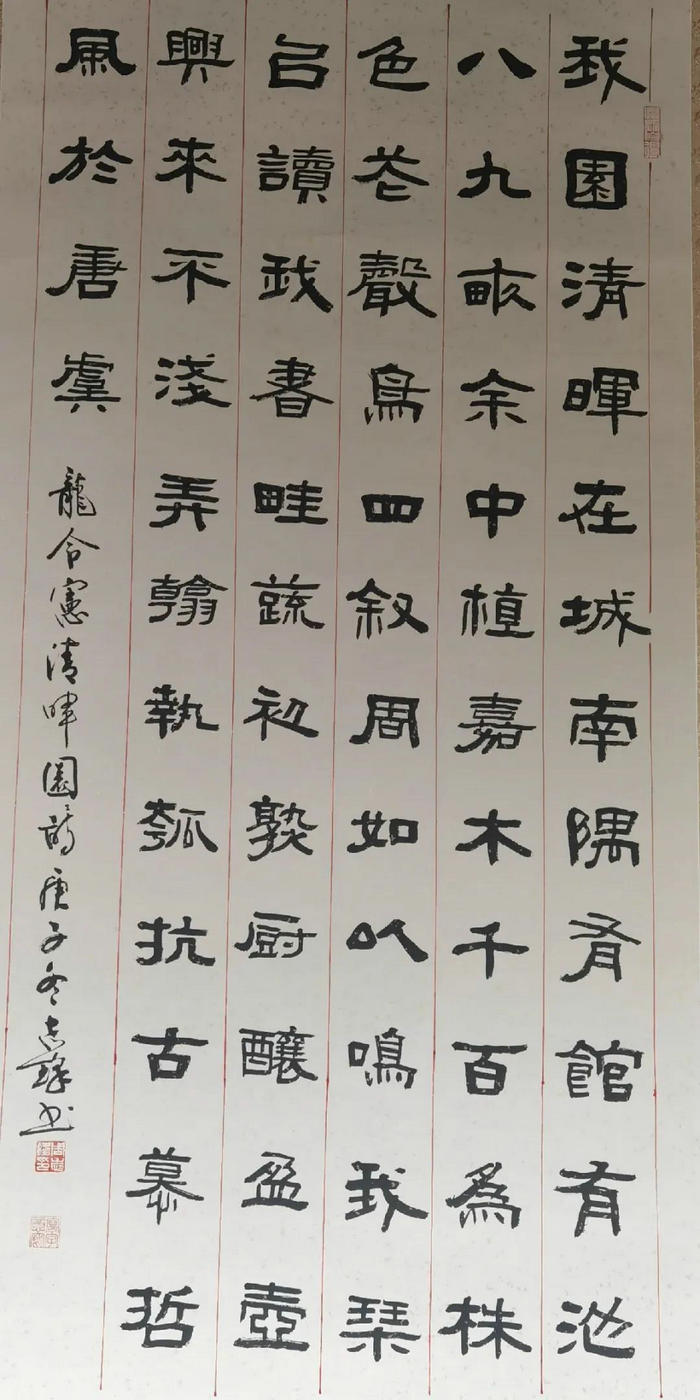 我園清暉在城南隅有館有池
八九畝余中植嘉木千百爲株
色花聲鳥四叙周如以鳴我琴
台讀我書畦蔬初熟厨釀盈壺
興來不淺弄翰執瓠抗古慕哲
風於唐虞 龍令憲清暉園詩庚子冬志鋒书